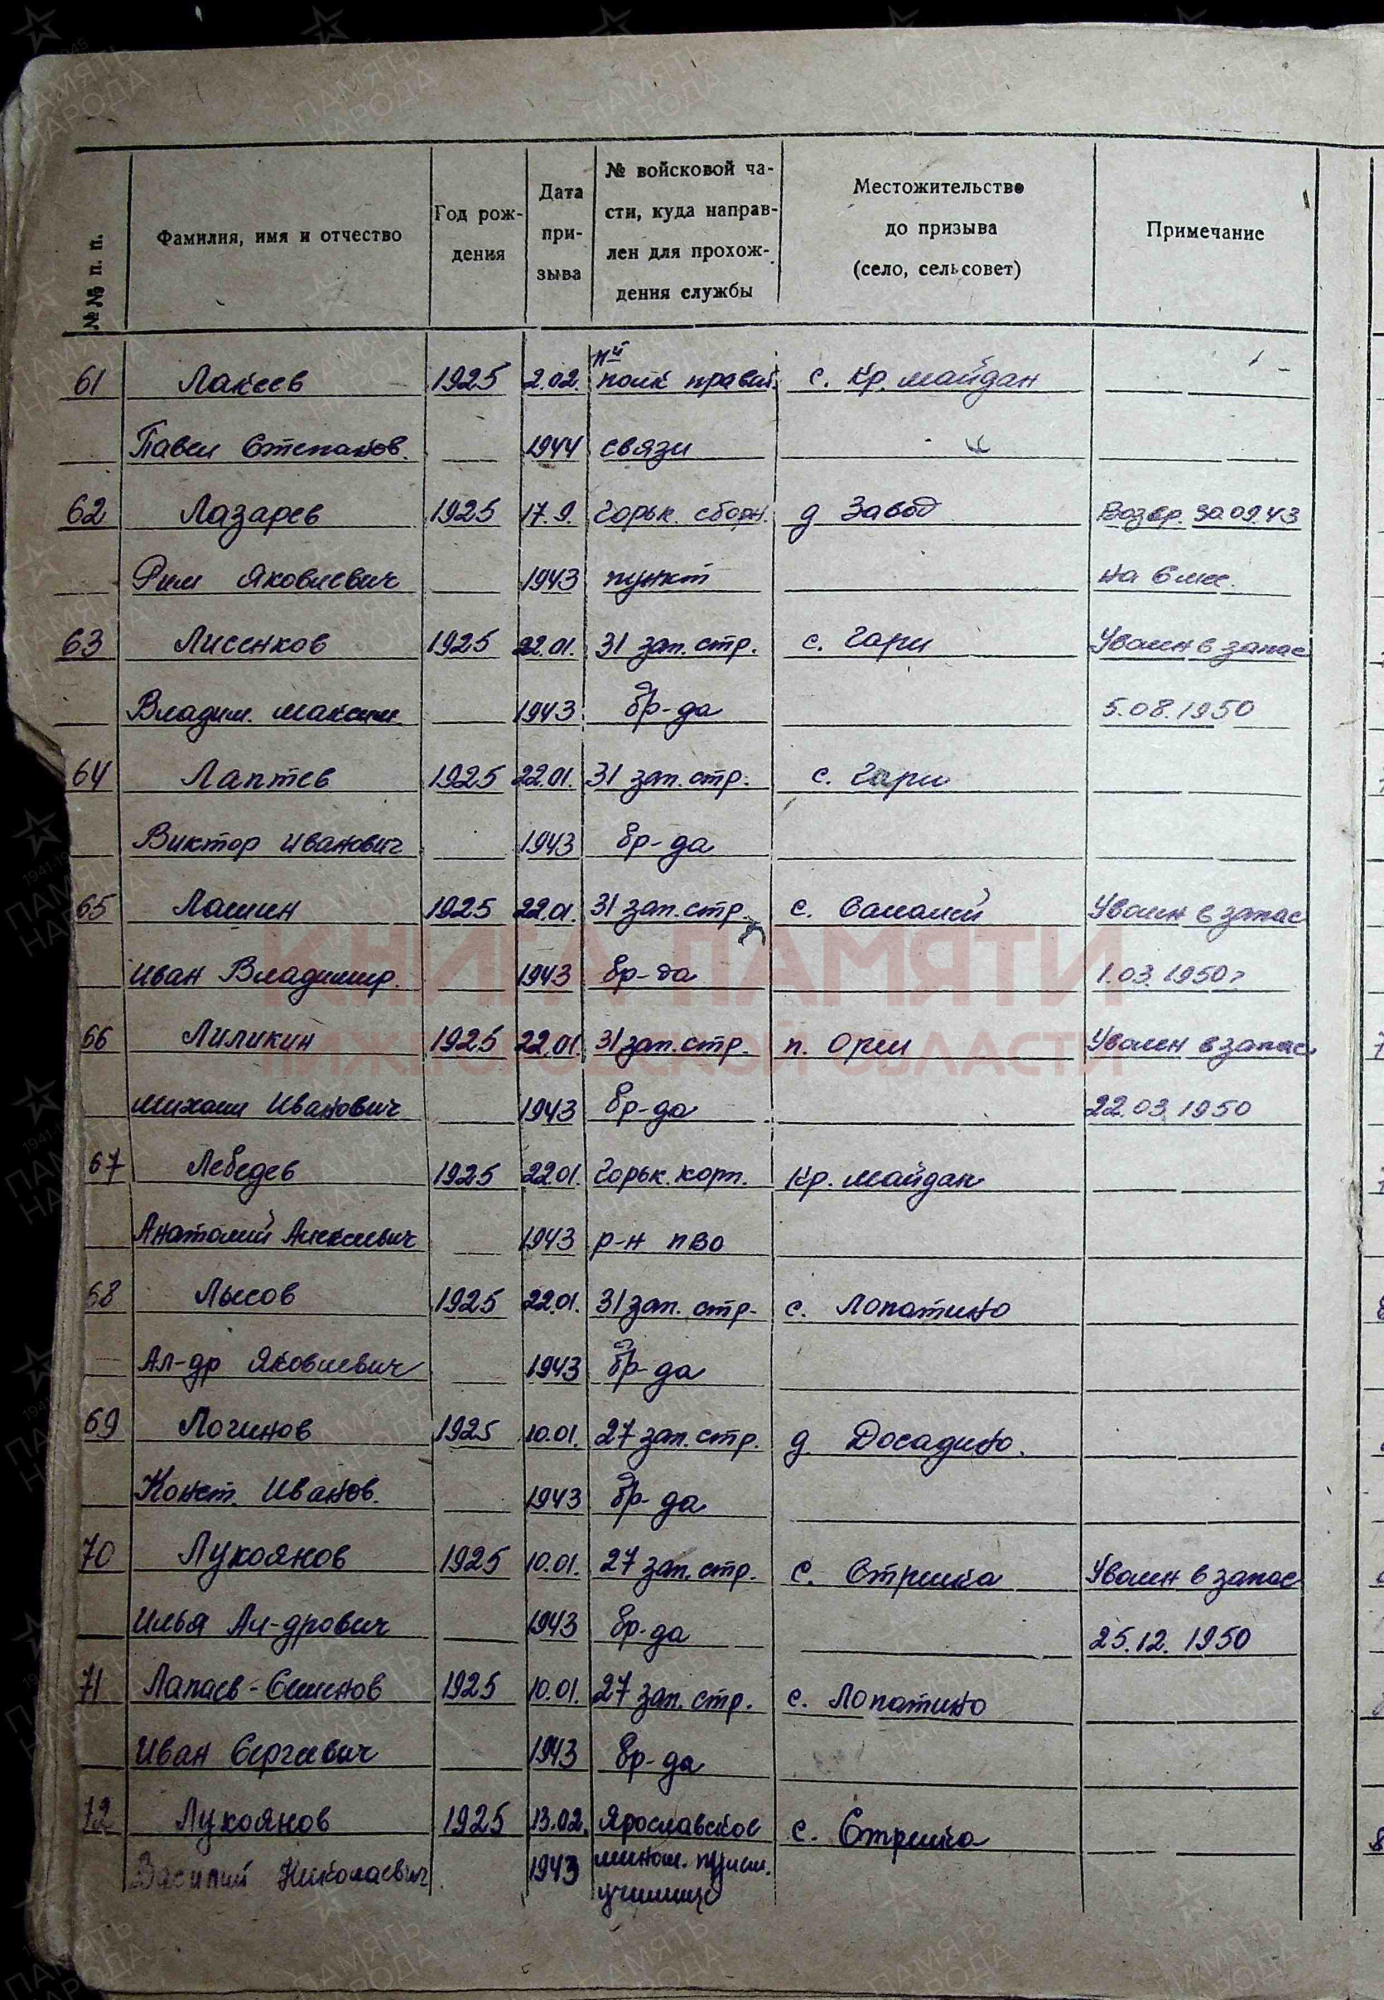 №№ п. п.
Фамилия, имя и отчество
Год рож-
дения
Дата
при-
зыва
№ войсковой ча-
сти, куда направ-
лен для прохож-
дения службы
Местожительство
до призыва
(село, сельсовет)
Примечание
61 Лакеев 1925 2.02. полк правит. с. Кр. майдан
Павел Степанов. 1944 связи
62 Лазарев 1925 17.9. Горьк. сборн. д Завод Возвр. 30 09.43
Рим Яковлевич 1943 пункт на 6 мес.
63 Лисенков 1925 22.01. 31 зап. стр. с. Гари Уволен в запас
Владим. Максим 1943 бр-да 5.08.1950
64 Лаптев 1925 22.01. 31 зап. стр. с. Гари
Виктор Иванович 1943 бр-да
65 Лашин 1925 22.01. 31 зап. стр. с. Саламей Уволен в запас
Иван Владимир. 1943 бр-да 1.03.1950г
66 Лиликин 1925 22.01. 31 зап. стр. п. Орли Уволен в запас
Михаил Иванович 1943 бр-да 22.03.1950
67 Лебедев 1925 22.01. Горьк. корп. Кр. майдан
Анатолий Алексеевич 1943 р-н ПВО
68 Лысов 1925 22.01. 31 зап. стр. с. Лопатино
Ал-др Яковлевич 1943 бр-да
69 Логинов 1925 10.01. 27 зап. стр. д. Досадино.
Конст. Иванов. 1943 бр-да
70 Лукоянов 1925 10.01. 27 зап. стр. с. Стрелка Уволен в запас
Илья Ал-дрович 1943 бр-да 25.12.1950
71 Лапаев-Семенов 1925 10.01. 27 зап. стр. с. Лопатино
Иван Сергеевич 1943 бр-да
72 Лукоянов 1925 13.02. Ярославское с. Стрелка
Василий Николаевич 1943 мином. пулем.
училище
КНИГА ПАМЯТИ
НИЖЕГОРОДСКОЙ ОБЛАСТИ
ПАМЯТЬ
НАРОДА